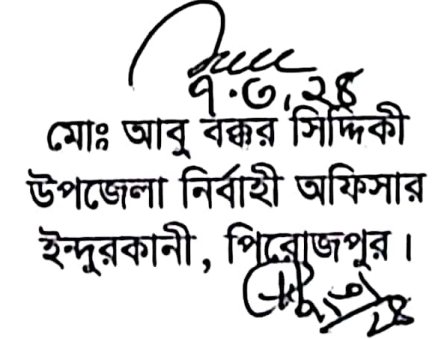 ৭.৩.২৪
মোঃ আবু বক্কর সিদ্দিকী
উপজেলা নির্বাহী অফিসার
ইন্দুরকানী, পিরোজপুর।